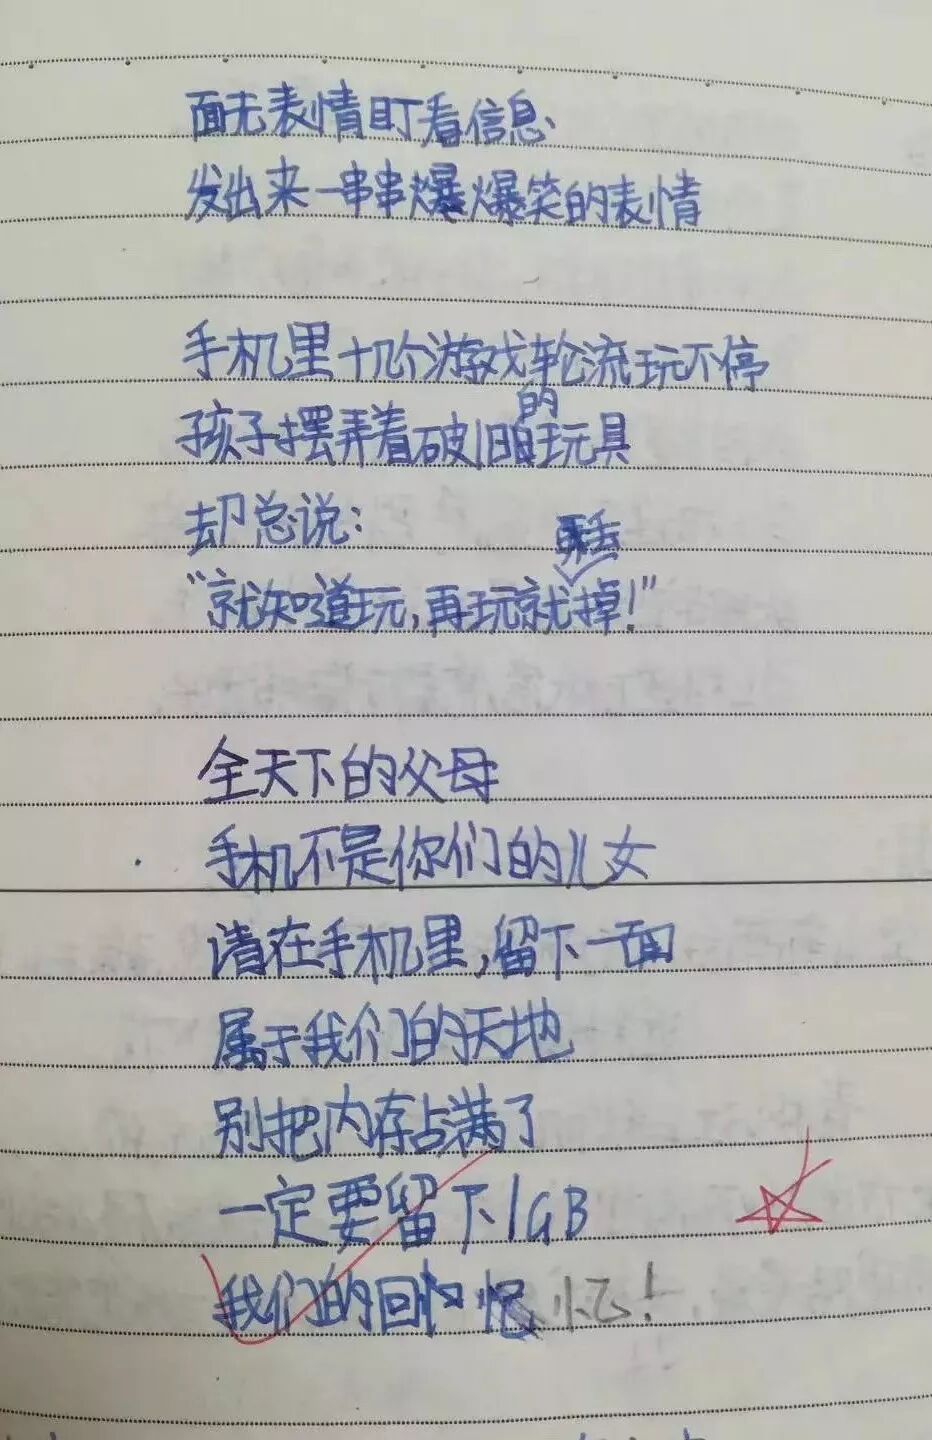 面无表情盯着信息
发出来一串串爆爆笑的表情
手机里十几个游戏轮流玩不停
孩子摆弄着破旧的玩具
却总说：
“就知道玩，再玩就丢掉！”
全天下的父母
手机不是你们的儿女
请在手机里，留下一面
属于我们的天地
别把内存占满了
一定要留下1GB
我们的回忆！